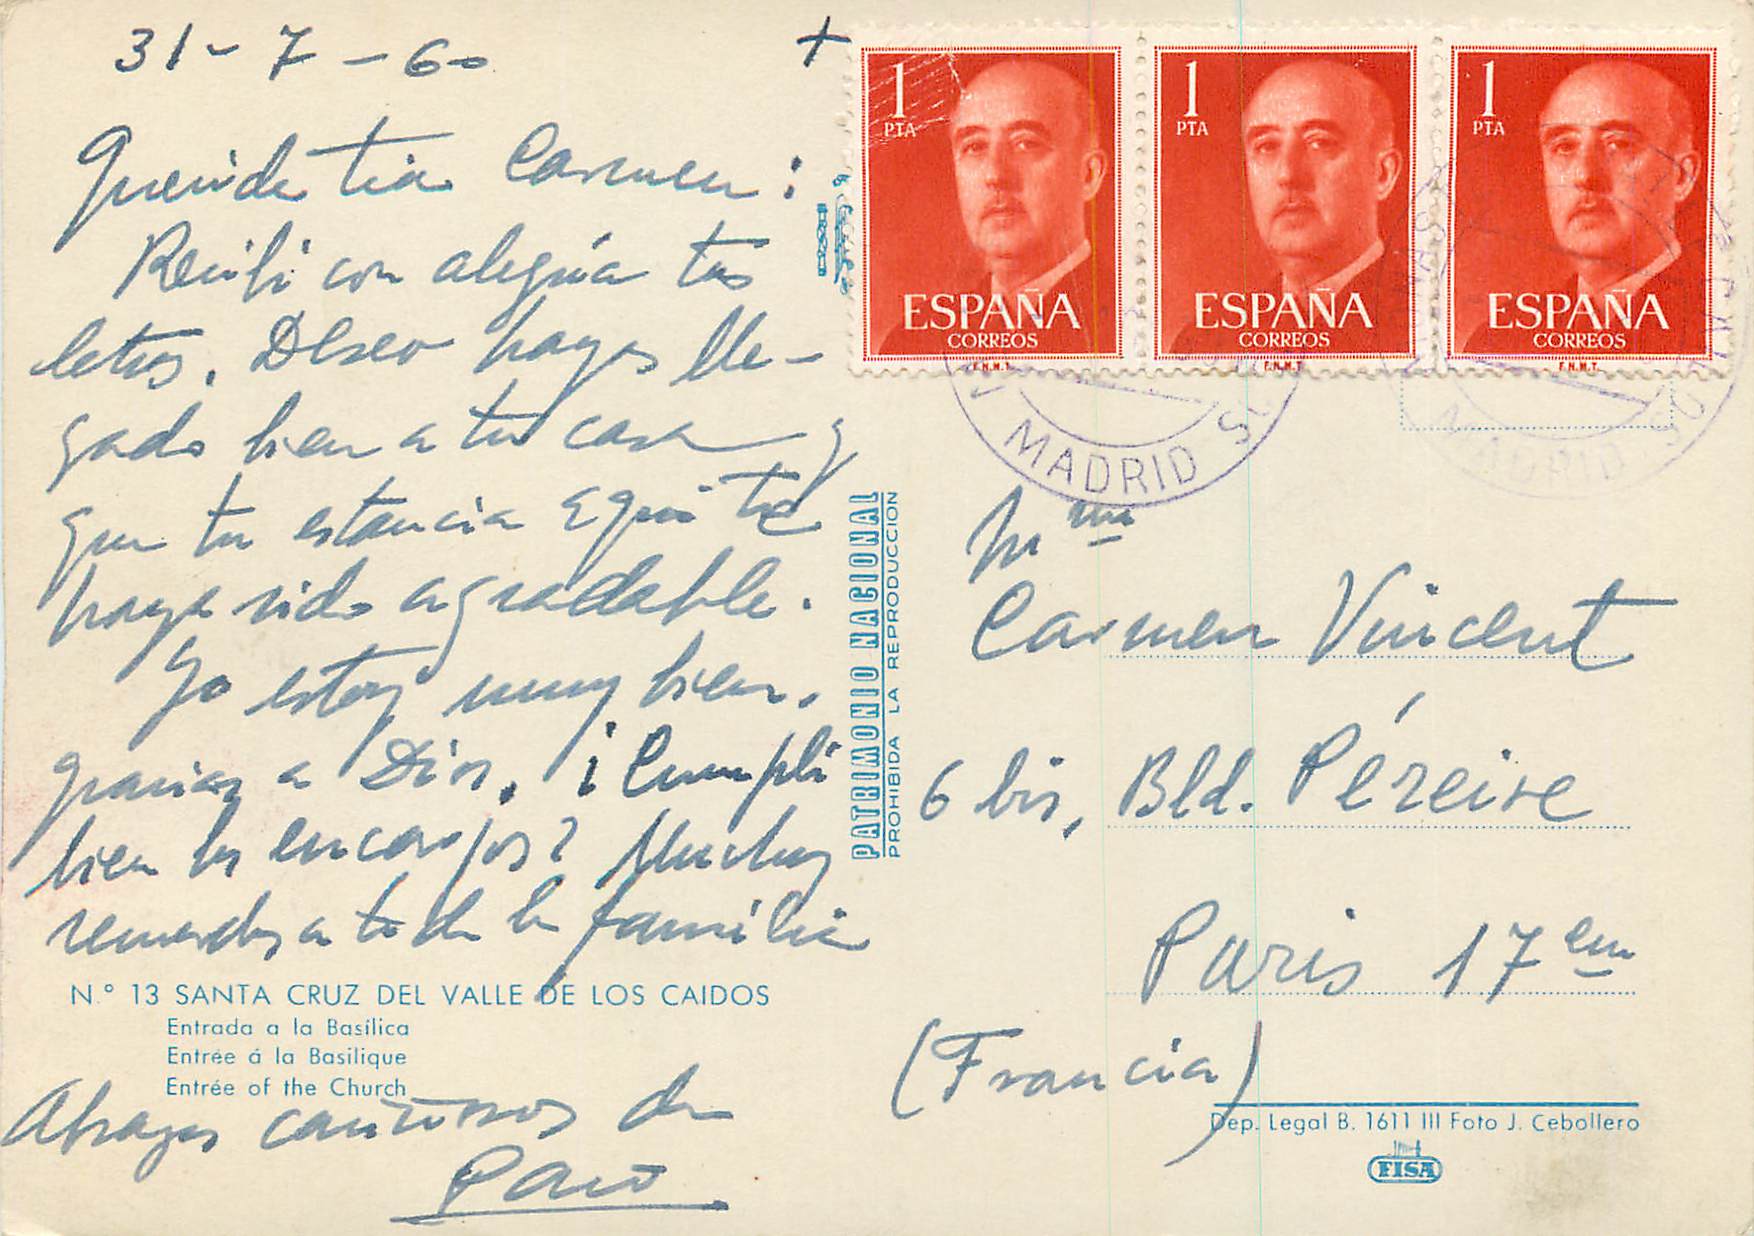 31-7-60
+
Querida tía Carmen:
Recibí con alegría tus
letras. Deseo hayas lle-
gado bien a tu casa y
que tu estancia aquí te
haya sido agradable.
Yo estoy muy bien,
gracias a Dios. ¿Cumplí
bien los encargos? Muchos
recuerdos a toda la familia
N.º 13 SANTA CRUZ DEL VALLE DE LOS CAIDOS
Entrada a la Basílica
Entrée á la Basilique
Entrée of the Church
Abrazos cariñosos de
Paco.
PATRIMONIO NACIONAL
PROHIBIDA LA REPRODUCCION
1 PTA
ESPAÑA
CORREOS
F.N.M.T.
1 PTA
ESPAÑA
CORREOS
F.N.M.T.
1 PTA
ESPAÑA
CORREOS
F.N.M.T.
MADRID
MADRID
Mme
Carmen Vincent
6 bis, Bld. Péreire
Paris 17em
(Francia)
Dep. Legal B. 1611 III Foto J. Cebollero
FISA